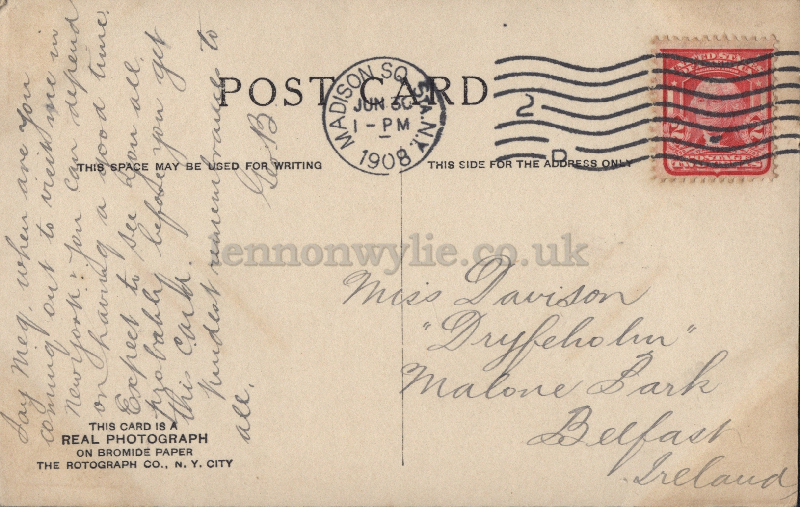 POST CARD
MADISON SQ. STA. N.Y.
JUN 30
1 - PM
1908
2
D
UNITED STATES
2 2
THIS SPACE MAY BE USED FOR WRITING
THIS SIDE FOR THE ADDRESS ONLY
Say Meg. when are you
coming out to visit me in
New York. You can depend
on having a good time.
Expect to see you all.
probably before you get
this card.
Kindest remembrances to
all.
Geo B
lennonwylie.co.uk
Miss Davison
"Dryfeholm"
Malone Park
Belfast
Ireland
THIS CARD IS A
REAL PHOTOGRAPH
ON BROMIDE PAPER
THE ROTOGRAPH CO., N. Y. CITY